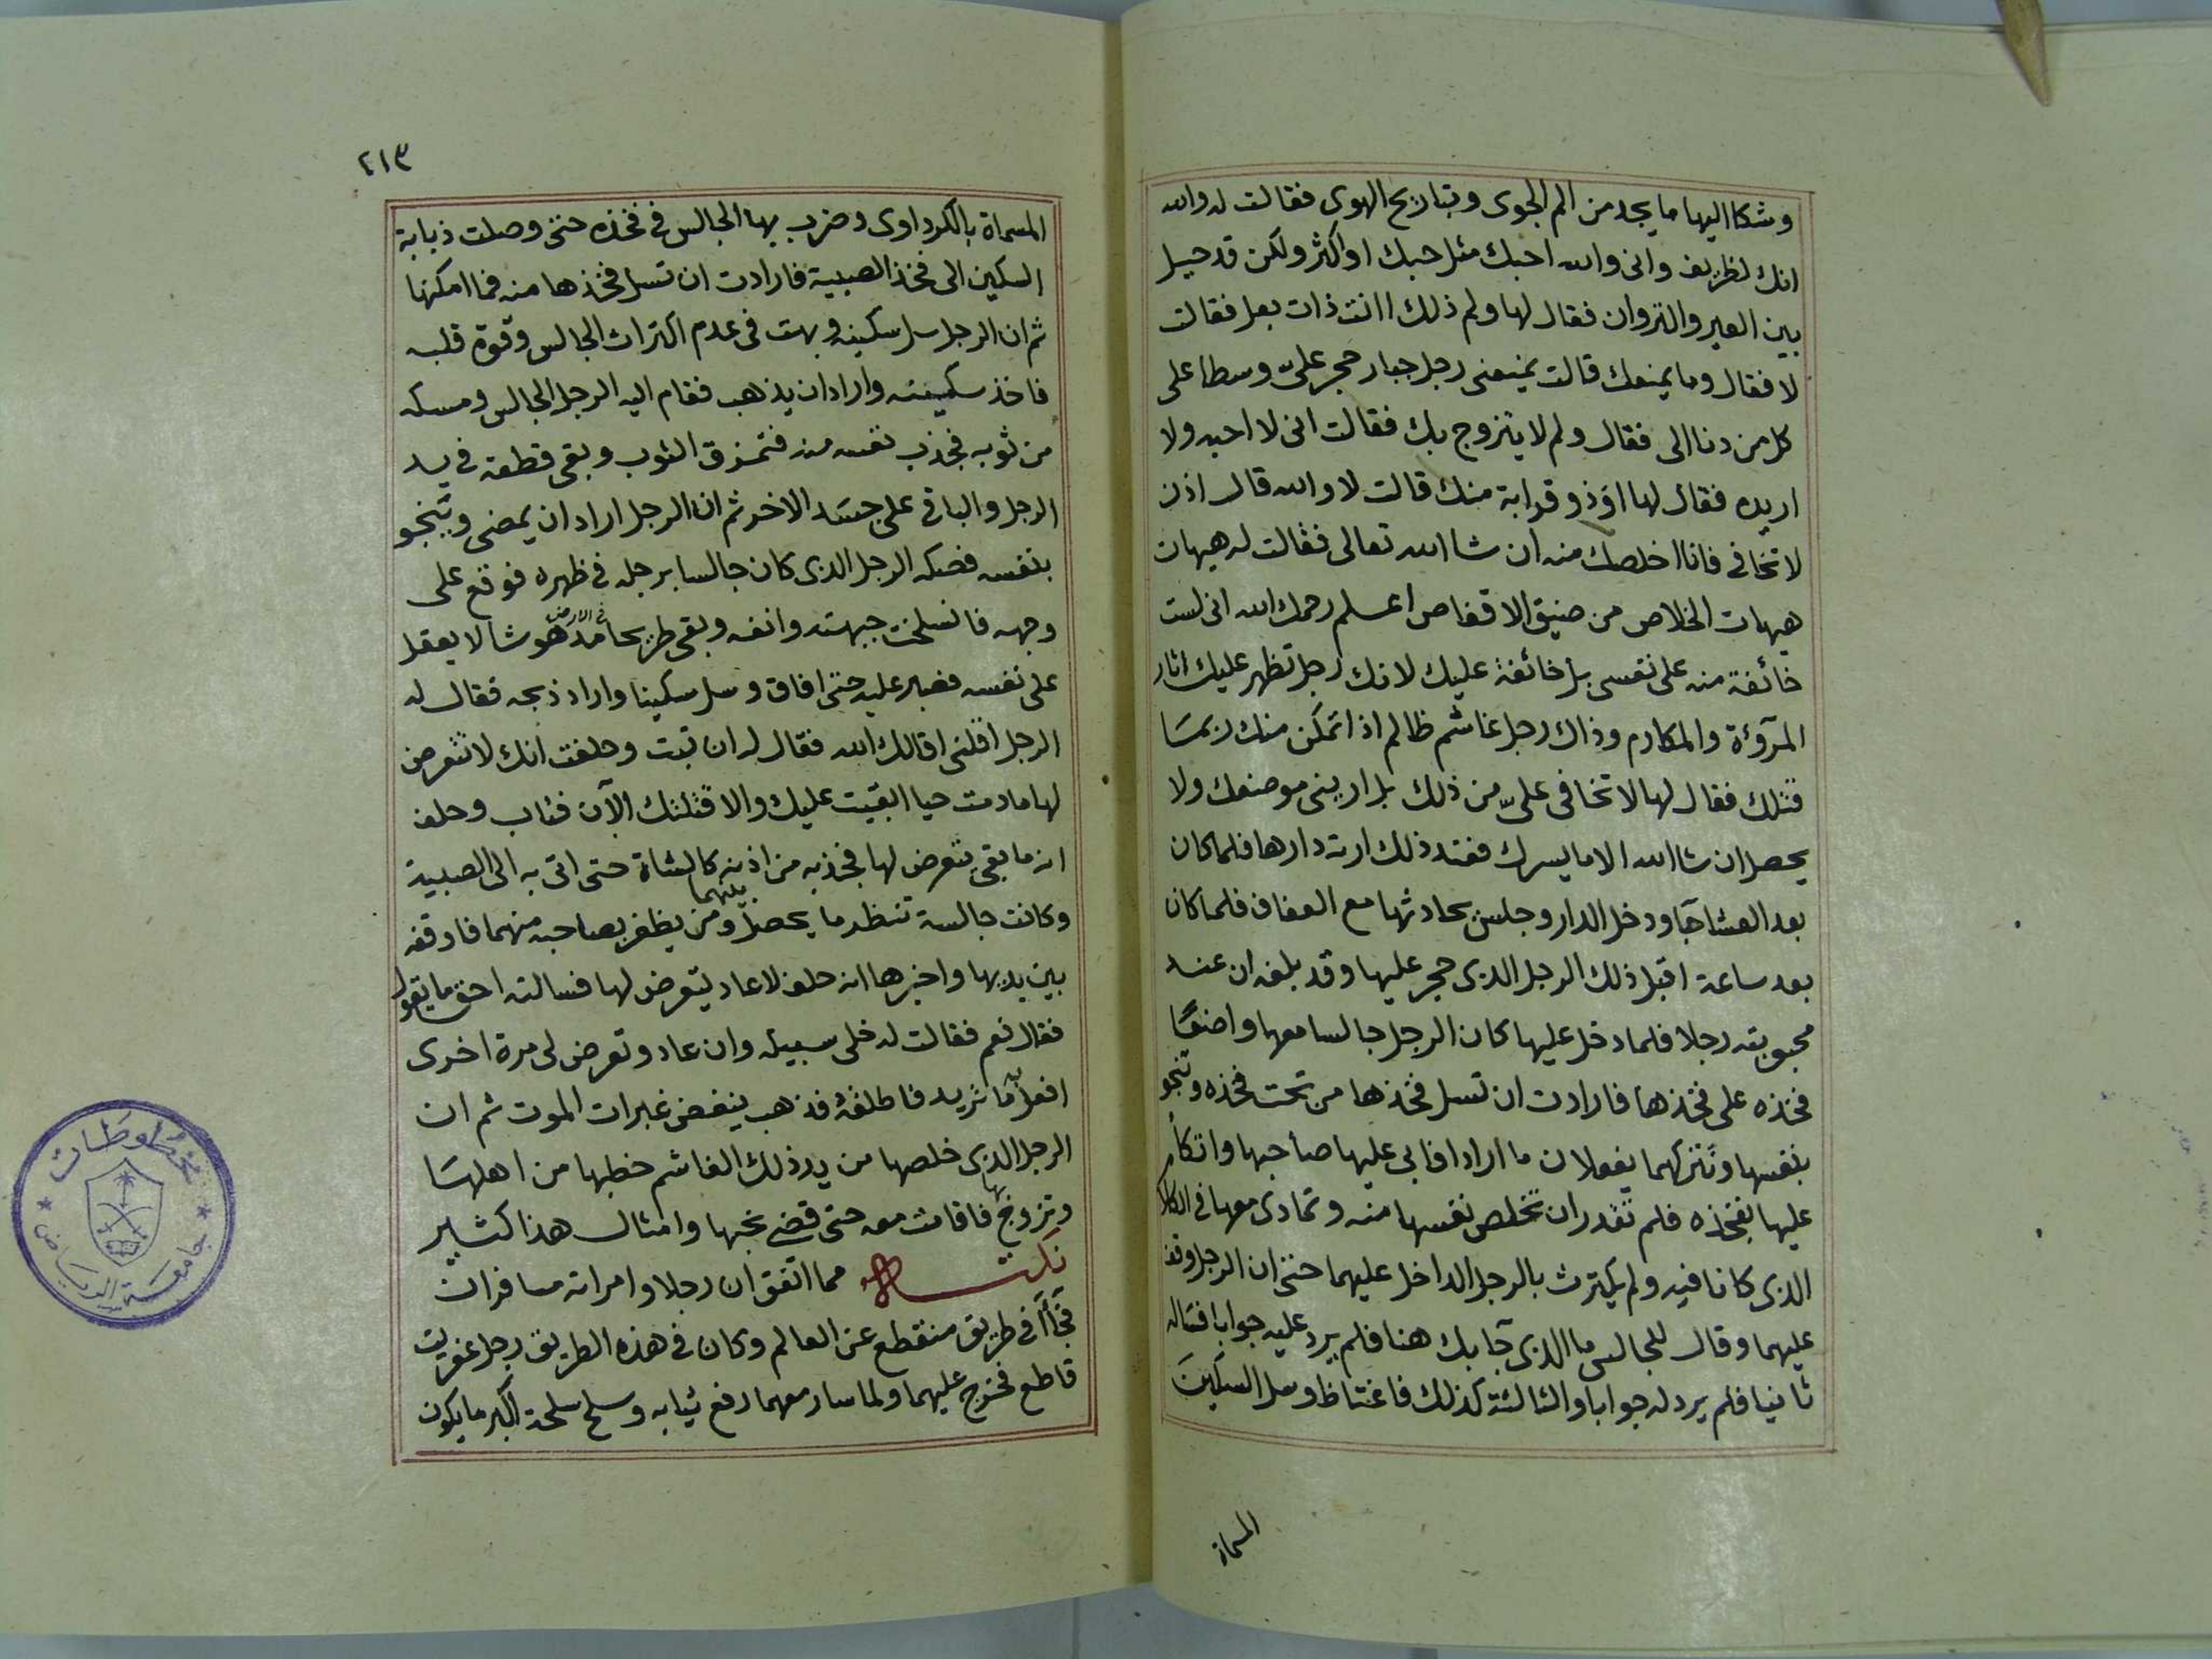 وشكا اليها ما يجد من الم الجوى وتباريح الهوى فقالت له والله
انك لظريف وانى والله احبك مثل حبك او اكثر ولكن قد حيل
بين العير والنزوان فقال لها ولم ذلك اانت ذات بعل فقالت
لا فقال وما يمنعك قالت يمنعنى رجل جبار حجر علىّ وسطا على
كل من دنا الى فقال ولم لا يتزوج بك فقالت انى لا احبه ولا
اريده فقال لها اوذو قرابة منك قالت لا والله قال اذن
لا تخافى فانا اخلصك منه ان شا الله تعالى فقالت له هيهات
هيهات الخلاص من ضيق الاقفاص اعلم رحمك الله انى لست
خائفة منه على نفسى بل خائفة عليك لانك رجل تظهر عليك اثار
المرؤة والمكارم وذاك رجل غاشم ظالم اذا تمكن منك ربما
قتلك فقال لها لا تخافى علىّ من ذلك بل ارينى موضعك ولا
يحصل ان شا الله الا ما يسرك فعند ذلك ارته دارها فلما كان
بعد العشا جآ ودخل الدار وجلس يحادثها مع العفاف فلما كان
بعد ساعة اقبل ذلك الرجل الذى حجر عليها وقد بلغه ان عند
محبوبته رجلا فلما دخل عليها كان الرجل جالسا معها واضعًا
فخذه على فخذها فارادت ان تسل فخذها من تحت فخذه وتنجو
بنفسها وتتركهما يفعلان ما ارادا فابى عليها صاحبها واتكأ
عليها بفخذه فلم تقدر ان تخلص نفسها منه وتمادى معها فى الكلام
الذى كانا فيه ولم يكترث بالرجل الداخل عليهما حتى ان الرجل وقف
عليهما وقال للجالس ما الذى جآ بك هنا فلم يرد عليه جوابا فساله
ثانيا فلم يرد له جوابا والثالثة كذلك فاغتاظ وسل السكين
المسماة
٢١٣
المسماة بالكرداوى وضرب بها الجالس فى فخذه حتى وصلت ذبابة
السكين الى فخذ الصبية فارادت ان تسل فخذها منه فما امكنها
ثم ان الرجل سل سكينه وبهت فى عدم اكتراث الجالس وقوة قلبه
فاخذ سكينته واراد ان يذهب فقام اليه الرجل الجالس ومسكه
من ثوبه فجذب نفسه منه فتمزق الثوب وبقى قطعة فى يد
الرجل والباقى على جسد الاخر ثم ان الرجل اراد ان يمضى وينجو
بنفسه فصكه الرجل الذى كان جالسا برجله فى ظهره فوقع على
وجهه فانسلخت جبهته وانفه وبقى طريحا فى الارض مدهوشا لا يعقل
على نفسه فصبر عليه حتى افاق وسل سكينا واراد ذبحه فقال له
الرجل اقلنى اقالك الله فقال له ان تبت وحلفت انك لا تتعرض
لها ما دمت حيا ابقيت عليك والا قتلتك الآن فتاب وحلف
انه ما بقى يتعرض لها فجذبه من اذنه كالشاة حتى اتى به الى الصبية
وكانت جالسة تنظر ما يحصل بينهما ومن يظفر بصاحبه منهما فاوقفه
بين يديها واخبرها انه حلف لا عاد يتعرض لها فسالته احق ما يقول
فقال نعم فقالت له خلى سبيله وان عاد وتعرض لى مرة اخرى
افعل به ما تريد فاطلقه فذهب ينفض غبرات الموت ثم ان
الرجل الذى خلصها من يد ذلك الغاشم خطبها من اهلها
وتزوج بها فاقامت معه حتى قضى نحبها وامثال هذا كثير
نكتـــه مما اتفق ان رجلا وامراته مسافران
فجاآ فى طريق منقطع عن العالم وكان فى هذه الطريق رجل عفريت
قاطع فخرج عليهما ولما سار معهما رفع ثيابه وسلح سلحة اكبر ما يكون
مخطوطات
جامعة الرياض